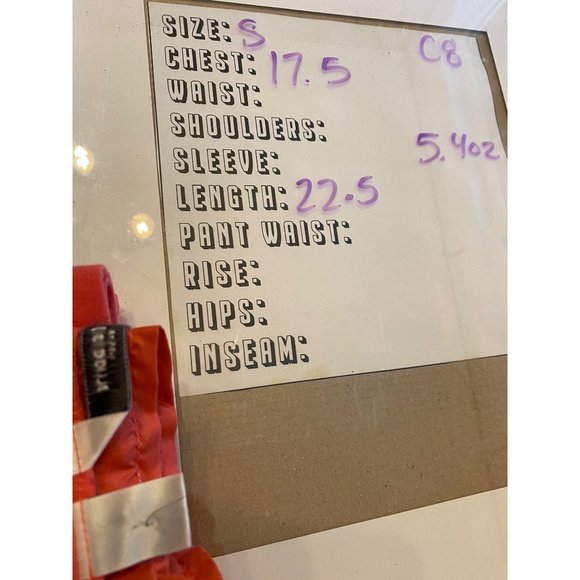 SIZE: S
C8
CHEST: 17.5
WAIST:
SHOULDERS:
5.4oz
SLEEVE:
LENGTH: 22.5
PANT WAIST:
RISE:
HIPS:
INSEAM: